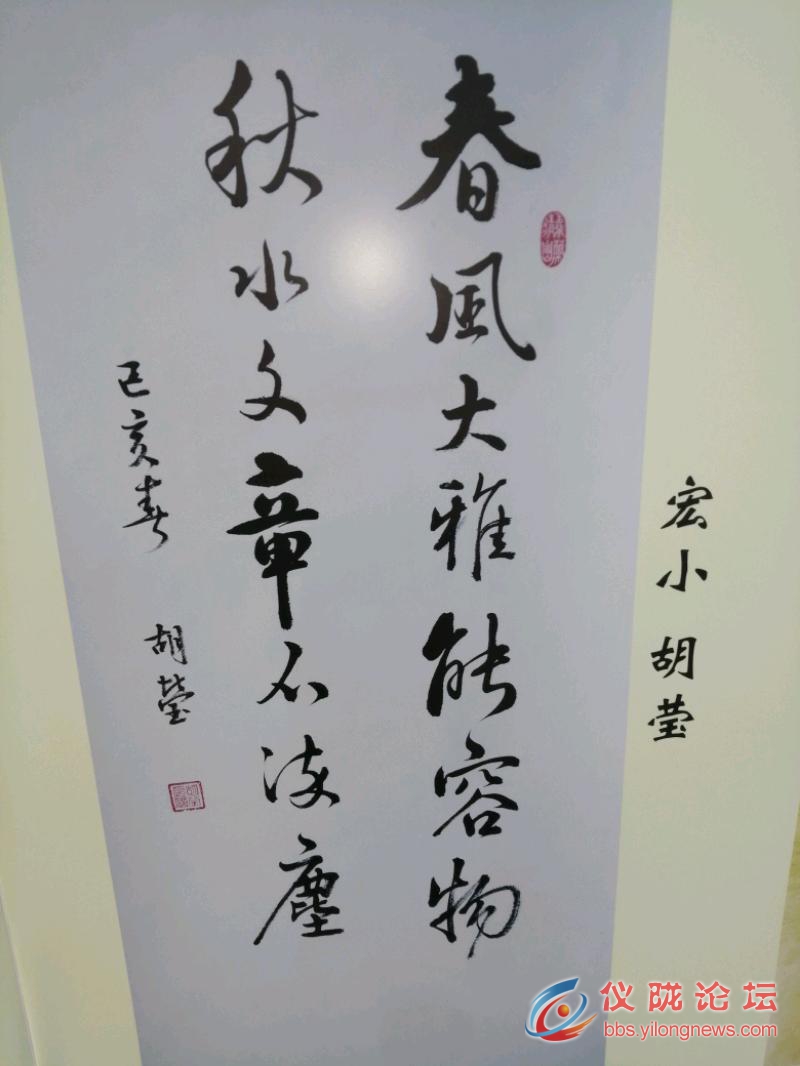 宏小 胡莹
春風大雅能容物
秋水文章不染塵
己亥春 胡瑩
仪陇论坛
bbs.yilongnews.com